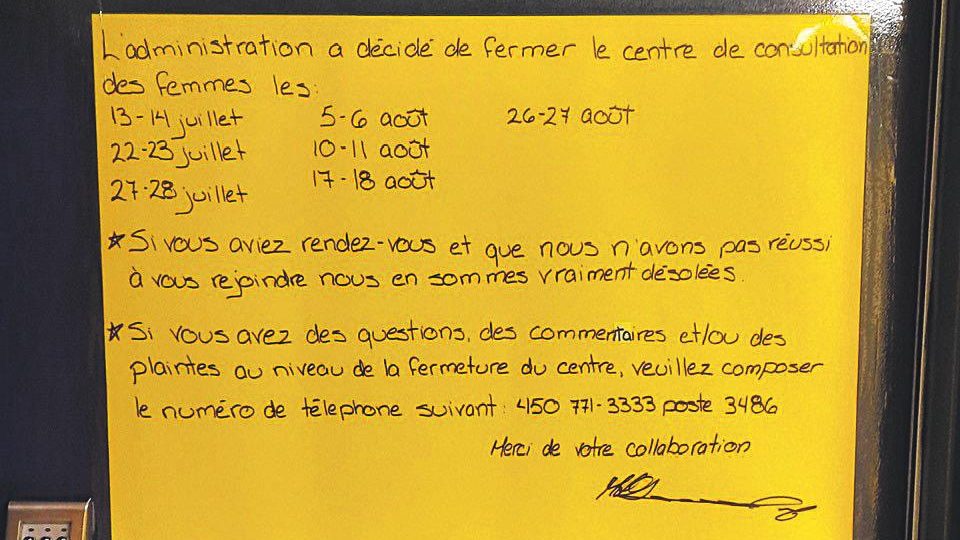 L'administration a décidé de fermer le centre de consultation
des femmes les:
13-14 juillet 5-6 août 26-27 août
22-23 juillet 10-11 août
27-28 juillet 17-18 août
★ Si vous aviez rendez-vous et que nous n'avons pas réussi
à vous rejoindre nous en sommes vraiment désolées.
★ Si vous avez des questions, des commentaires et/ou des
plaintes au niveau de la fermeture du centre, veuillez composer
le numéro de télephone suivant: 450 771-3333 poste 3486
Merci de votre collaboration